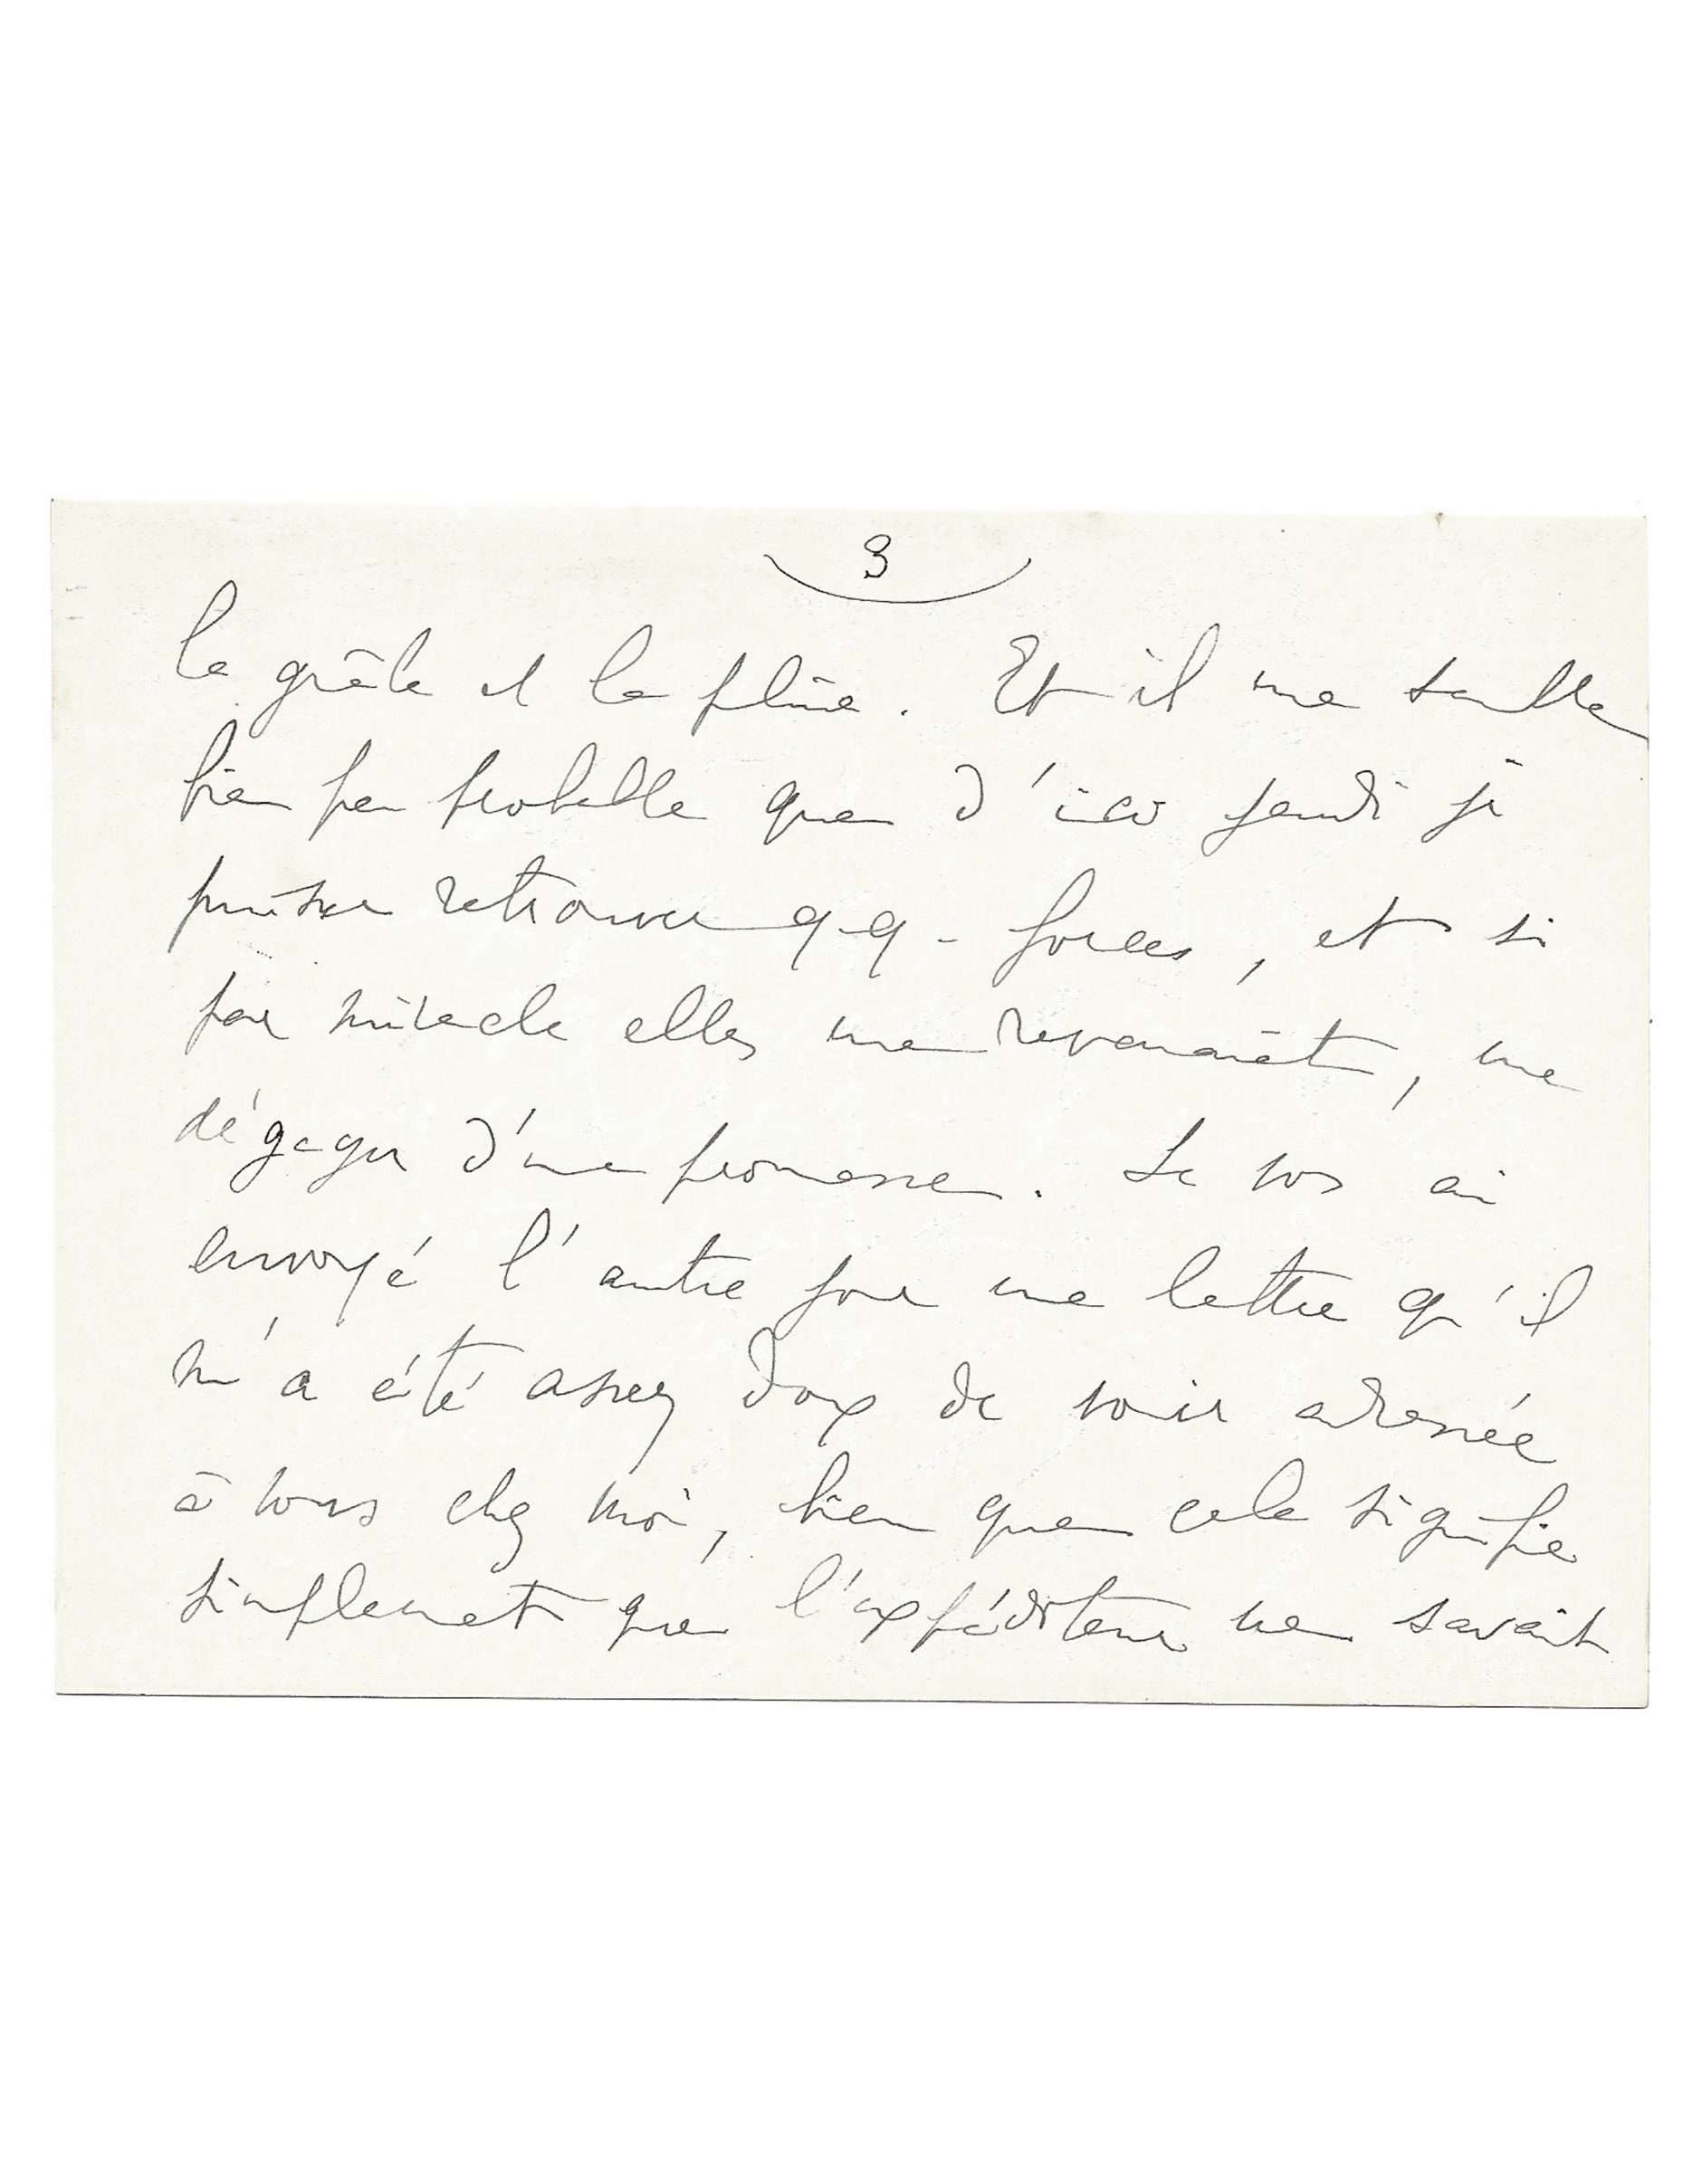 3
la grêle et la pluie. Et il me semble
bien peu probable que d'ici jeudi je
puisse retrouver qq. forces, et si
par miracle elles me revenaient, me
dégager d'une promesse. Je vous ai
envoyé l'autre jour une lettre qu'il
m'a été assez doux de voir adressée
à vous chez moi, bien que cela signifie
simplement que l'expéditeur ne savait